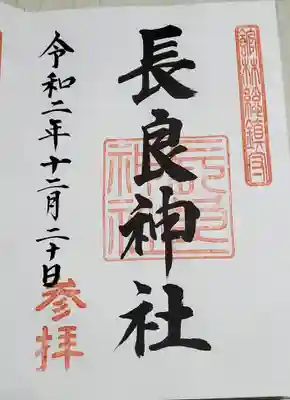 館林総鎮守
長良神社
長良
神社
令和二年十二月二十日
参拝